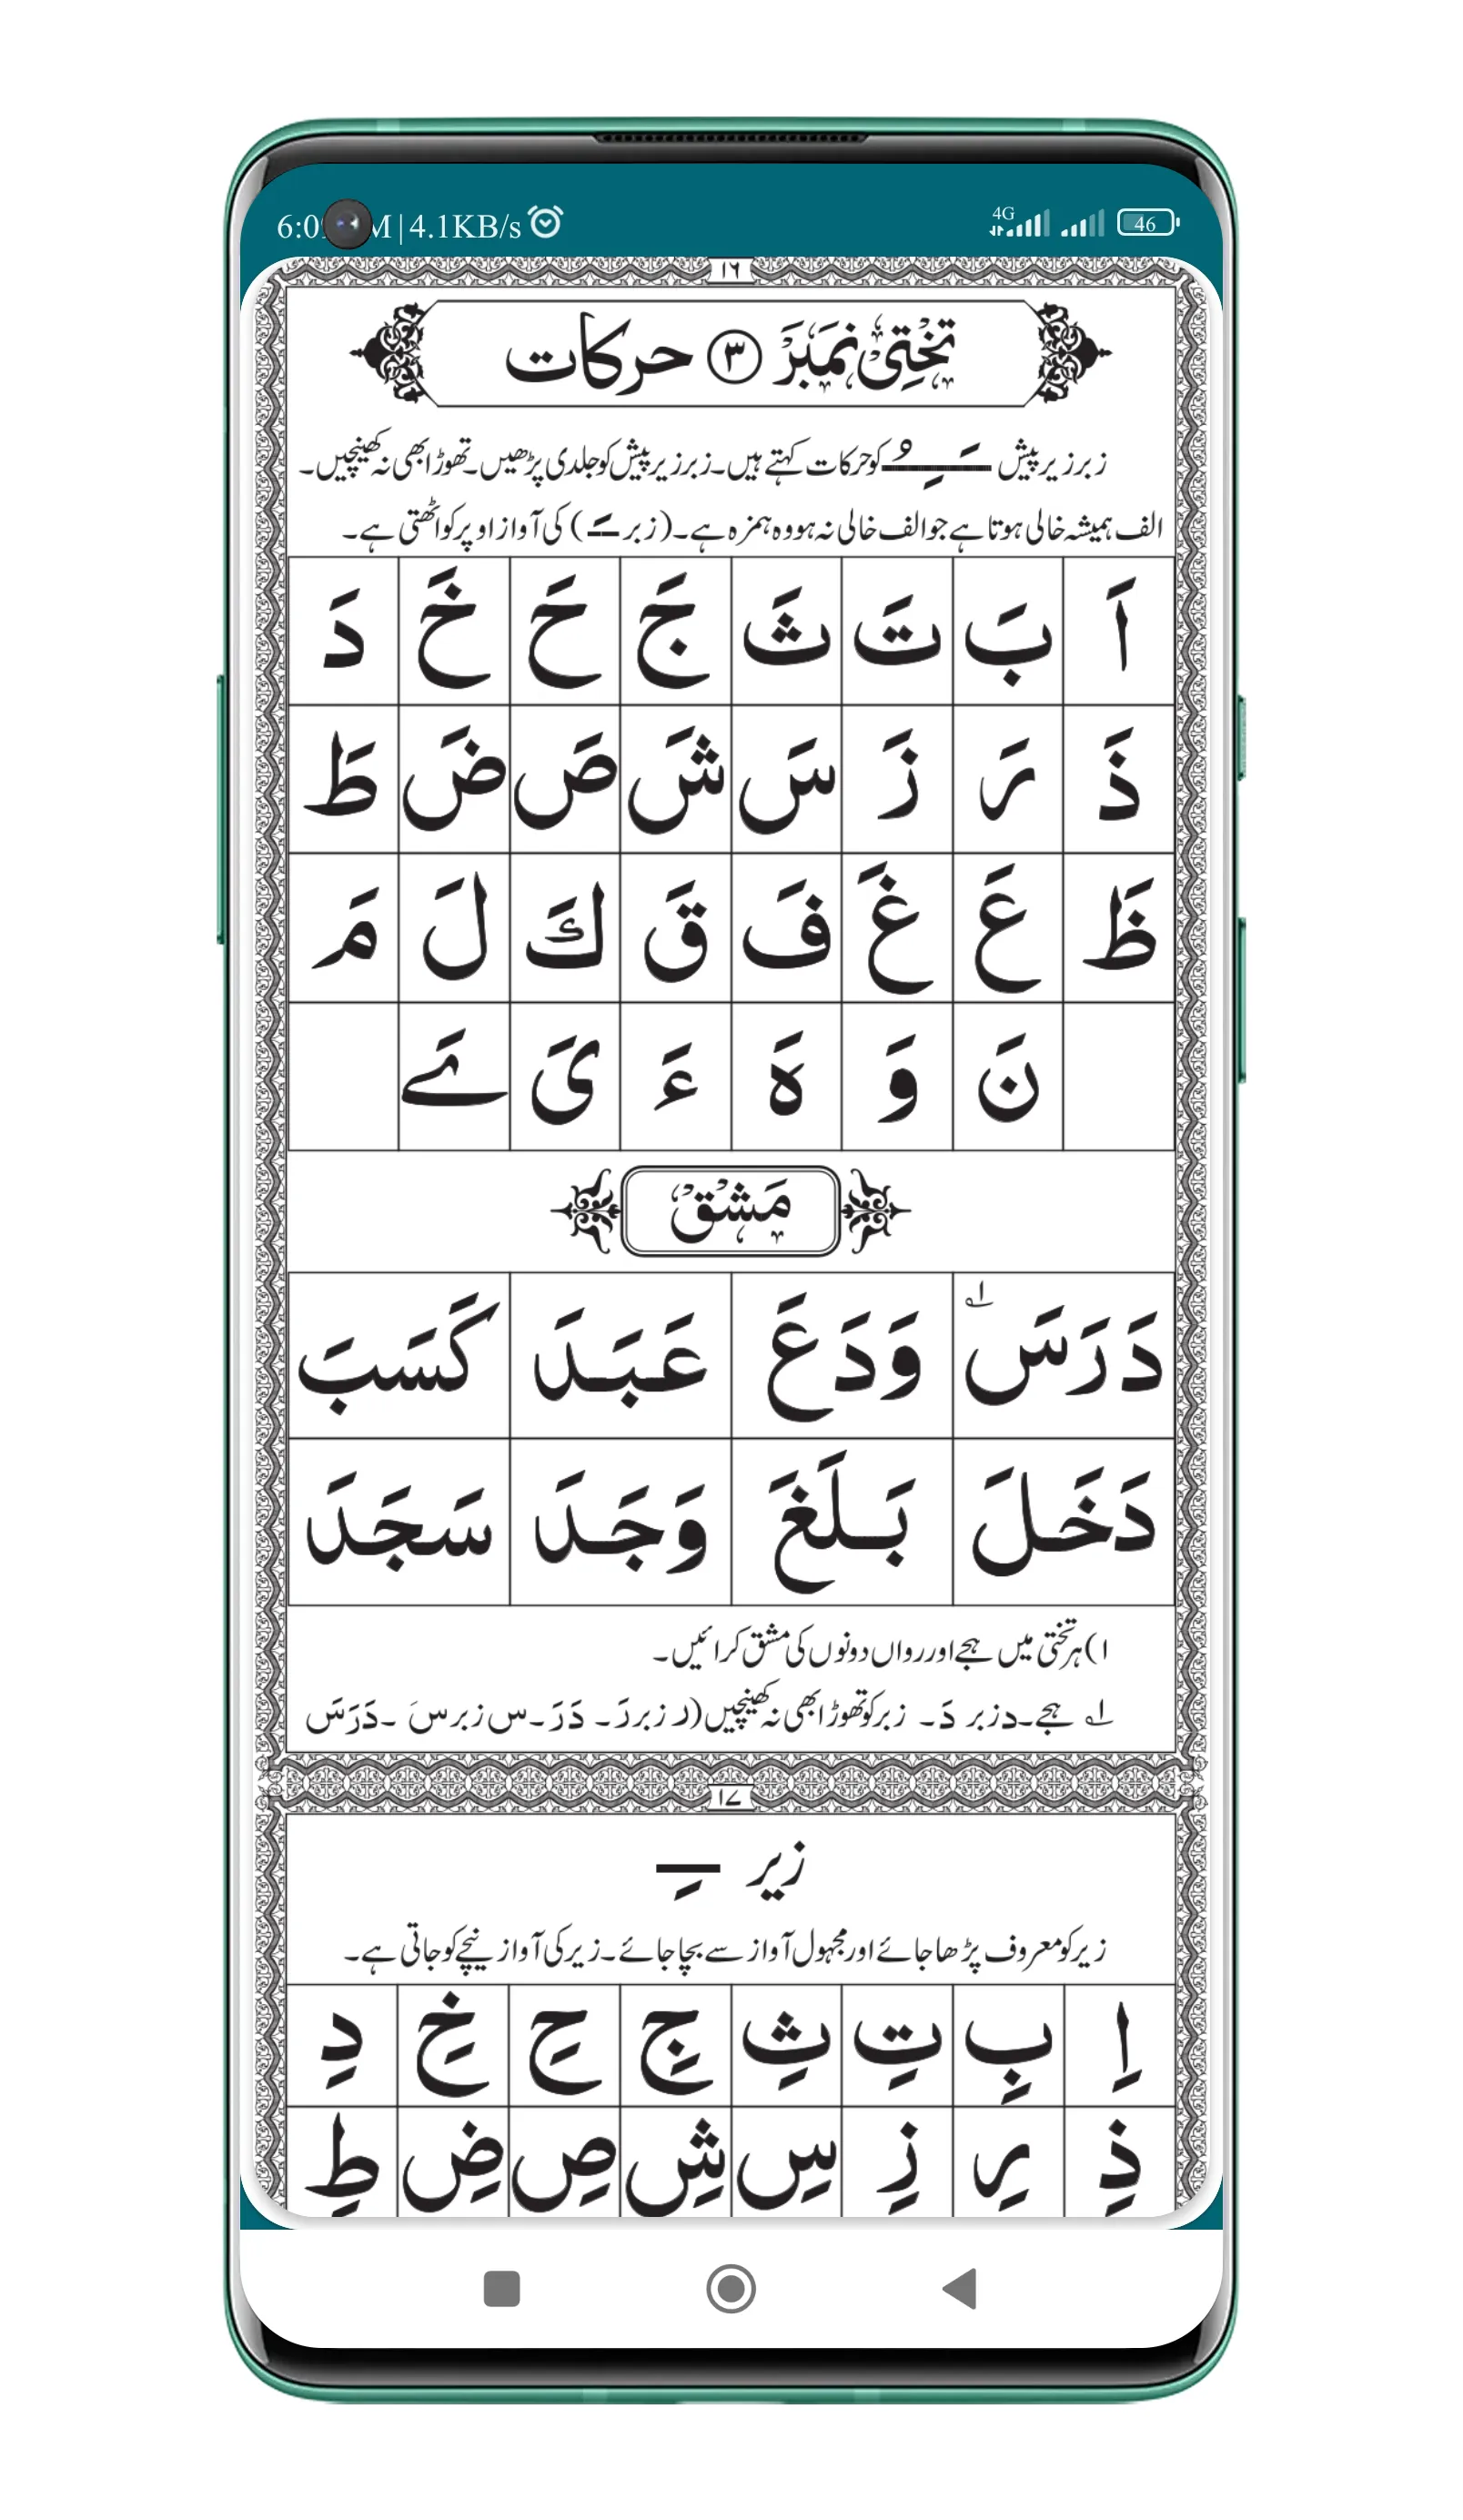 4.1KB/s 4G 46
١٦
تختی نمبر ٣ حرکات
زبر زیر پیش ـَـِـُ کو حرکات کہتے ہیں۔ زبر زیر پیش کو جلدی پڑھیں۔ تھوڑا بھی نہ کھینچیں۔
الف ہمیشہ خالی ہوتا ہے جو الف خالی نہ ہو وہ ہمزہ ہے۔ (زبر ـَ) کی آواز اوپر کو اٹھتی ہے۔
اَ بَ تَ ثَ جَ حَ خَ دَ
ذَ رَ زَ سَ شَ صَ ضَ طَ
ظَ عَ غَ فَ قَ كَ لَ مَ
نَ وَ هَ ءَ یَ ےَ
مَشْق
دَرَسَ ؎۱ وَدَعَ عَبَدَ كَسَبَ
دَخَلَ بَلَغَ وَجَدَ سَجَدَ
۱) ہر تختی میں ہجے اور رواں دونوں کی مشق کرائیں۔
؎۱ ہجے۔ د زبر دَ۔ زبر کو تھوڑا بھی نہ کھینچیں (ر زبر رَ۔ دَرَ۔ س زبر سَ۔ دَرَسَ
١٧
زیر ـِ
زیر کو معروف پڑھا جائے اور مجہول آواز سے بچا جائے۔ زیر کی آواز نیچے کو جاتی ہے۔
اِ بِ تِ ثِ جِ حِ خِ دِ
ذِ رِ زِ سِ شِ صِ ضِ طِ